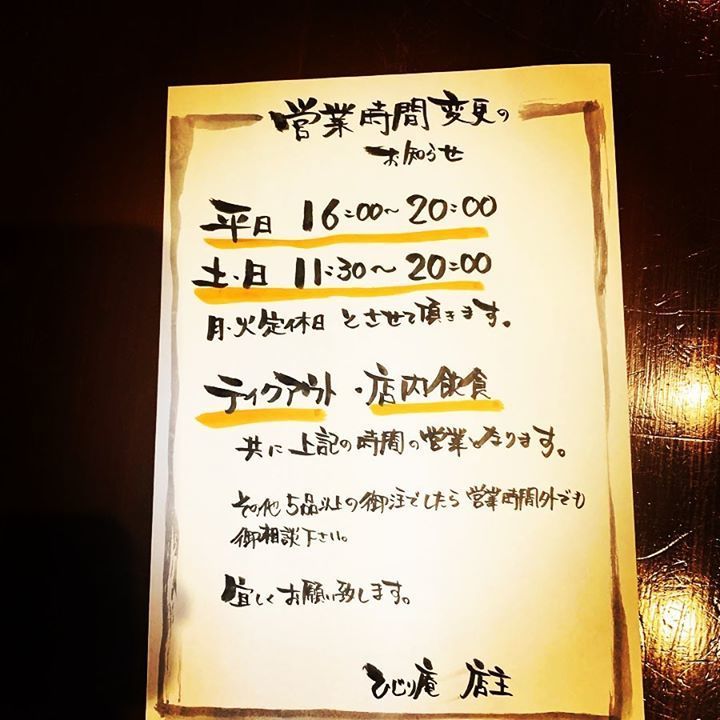 営業時間変更の
お知らせ
平日 16:00~20:00
土・日 11:30~20:00
月・火定休日 とさせて頂きます。
ティクアウト・店内飲食
共に上記の時間の営業となります。
その他5品以上の御注でしたら営業時間外でも
御相談下さい。
宜しくお願い致します。
ひじり庵 店主